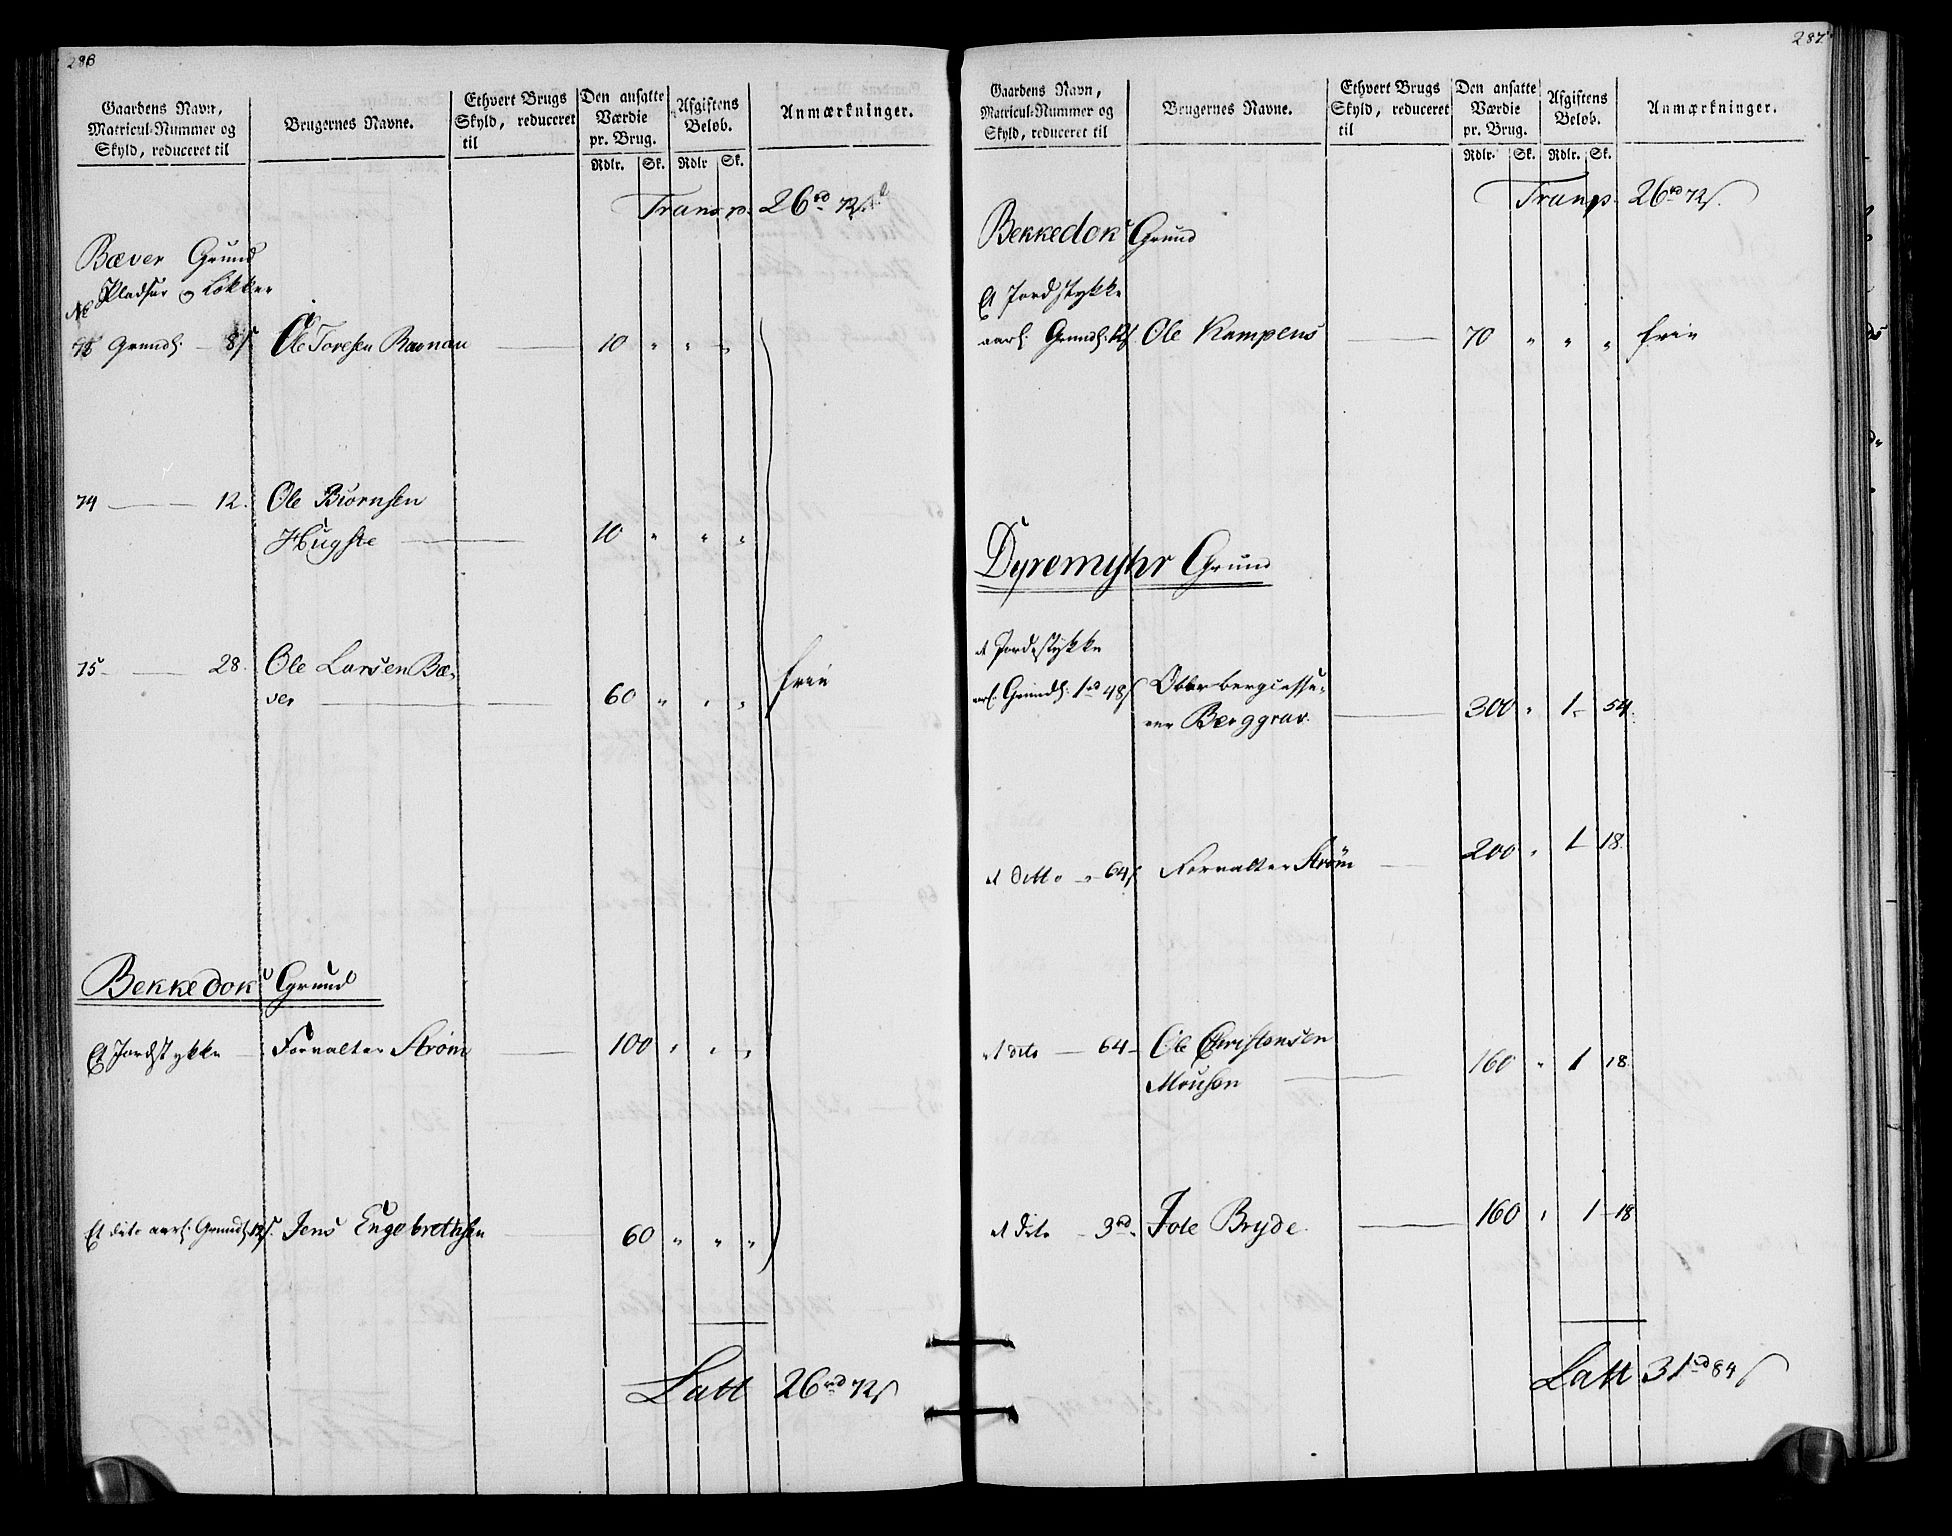 286
Gaardens Navn, Matricul-Nummer og Skyld, reduceret til
Brugernes Navne.
Ethvert Brugs Skyld, reduceret til
Den ansatte Værdie pr. Brug.
Afgiftens Beløb.
Anmærkninger.
Rdlr. Sk. Rdlr Sk.
Transp. 26rd 72s
Bæver Grund
Pladser og Løkker
No
73 Grundl. — 8s Ole Toresen Ravnau — 10 " " "
74 — 12. Ole Biørnsen
Hugste — 10 " " "
75 — 28. Ole Larsen Bæ-
ver — 60 " " " frie
Bekkedok Grund
Et Jordstykke — Forvalter Strøm — 100 " " "
Et dito aarl. Grundl. 12s. Jens Engebrethsen — 60 " " "
Latt 26rd 72s
287
Gaardens Navn, Matricul-Nummer og Skyld, reduceret til
Brugernes Navne.
Ethvert Brugs Skyld, reduceret til
Den ansatte Værdie pr. Brug.
Afgiftens Beløb.
Anmærkninger.
Rdlr. Sk. Rdlr. Sk.
Tranp. 26rd 72s.
Bekkedok Grund
Et Jordstykke
aarl. Grundl. 12s Ole Kampens — 70 " " " frie
Dyremyhr Grund
et Jordestykke
aarl. Grundl. 1rd 48s Oberbergasse-
ner Berggrav. — 300 " 1 - 54.
et ditto - " 64s Forvalter Strøm — 200 " 1 - 18.
et dito — 64 - Ole Christensen
Mousen — 160 " 1 18.
et dito - 3rd " Tole Bryde. — 160 " 1 - 18
Latt 31rd 84s